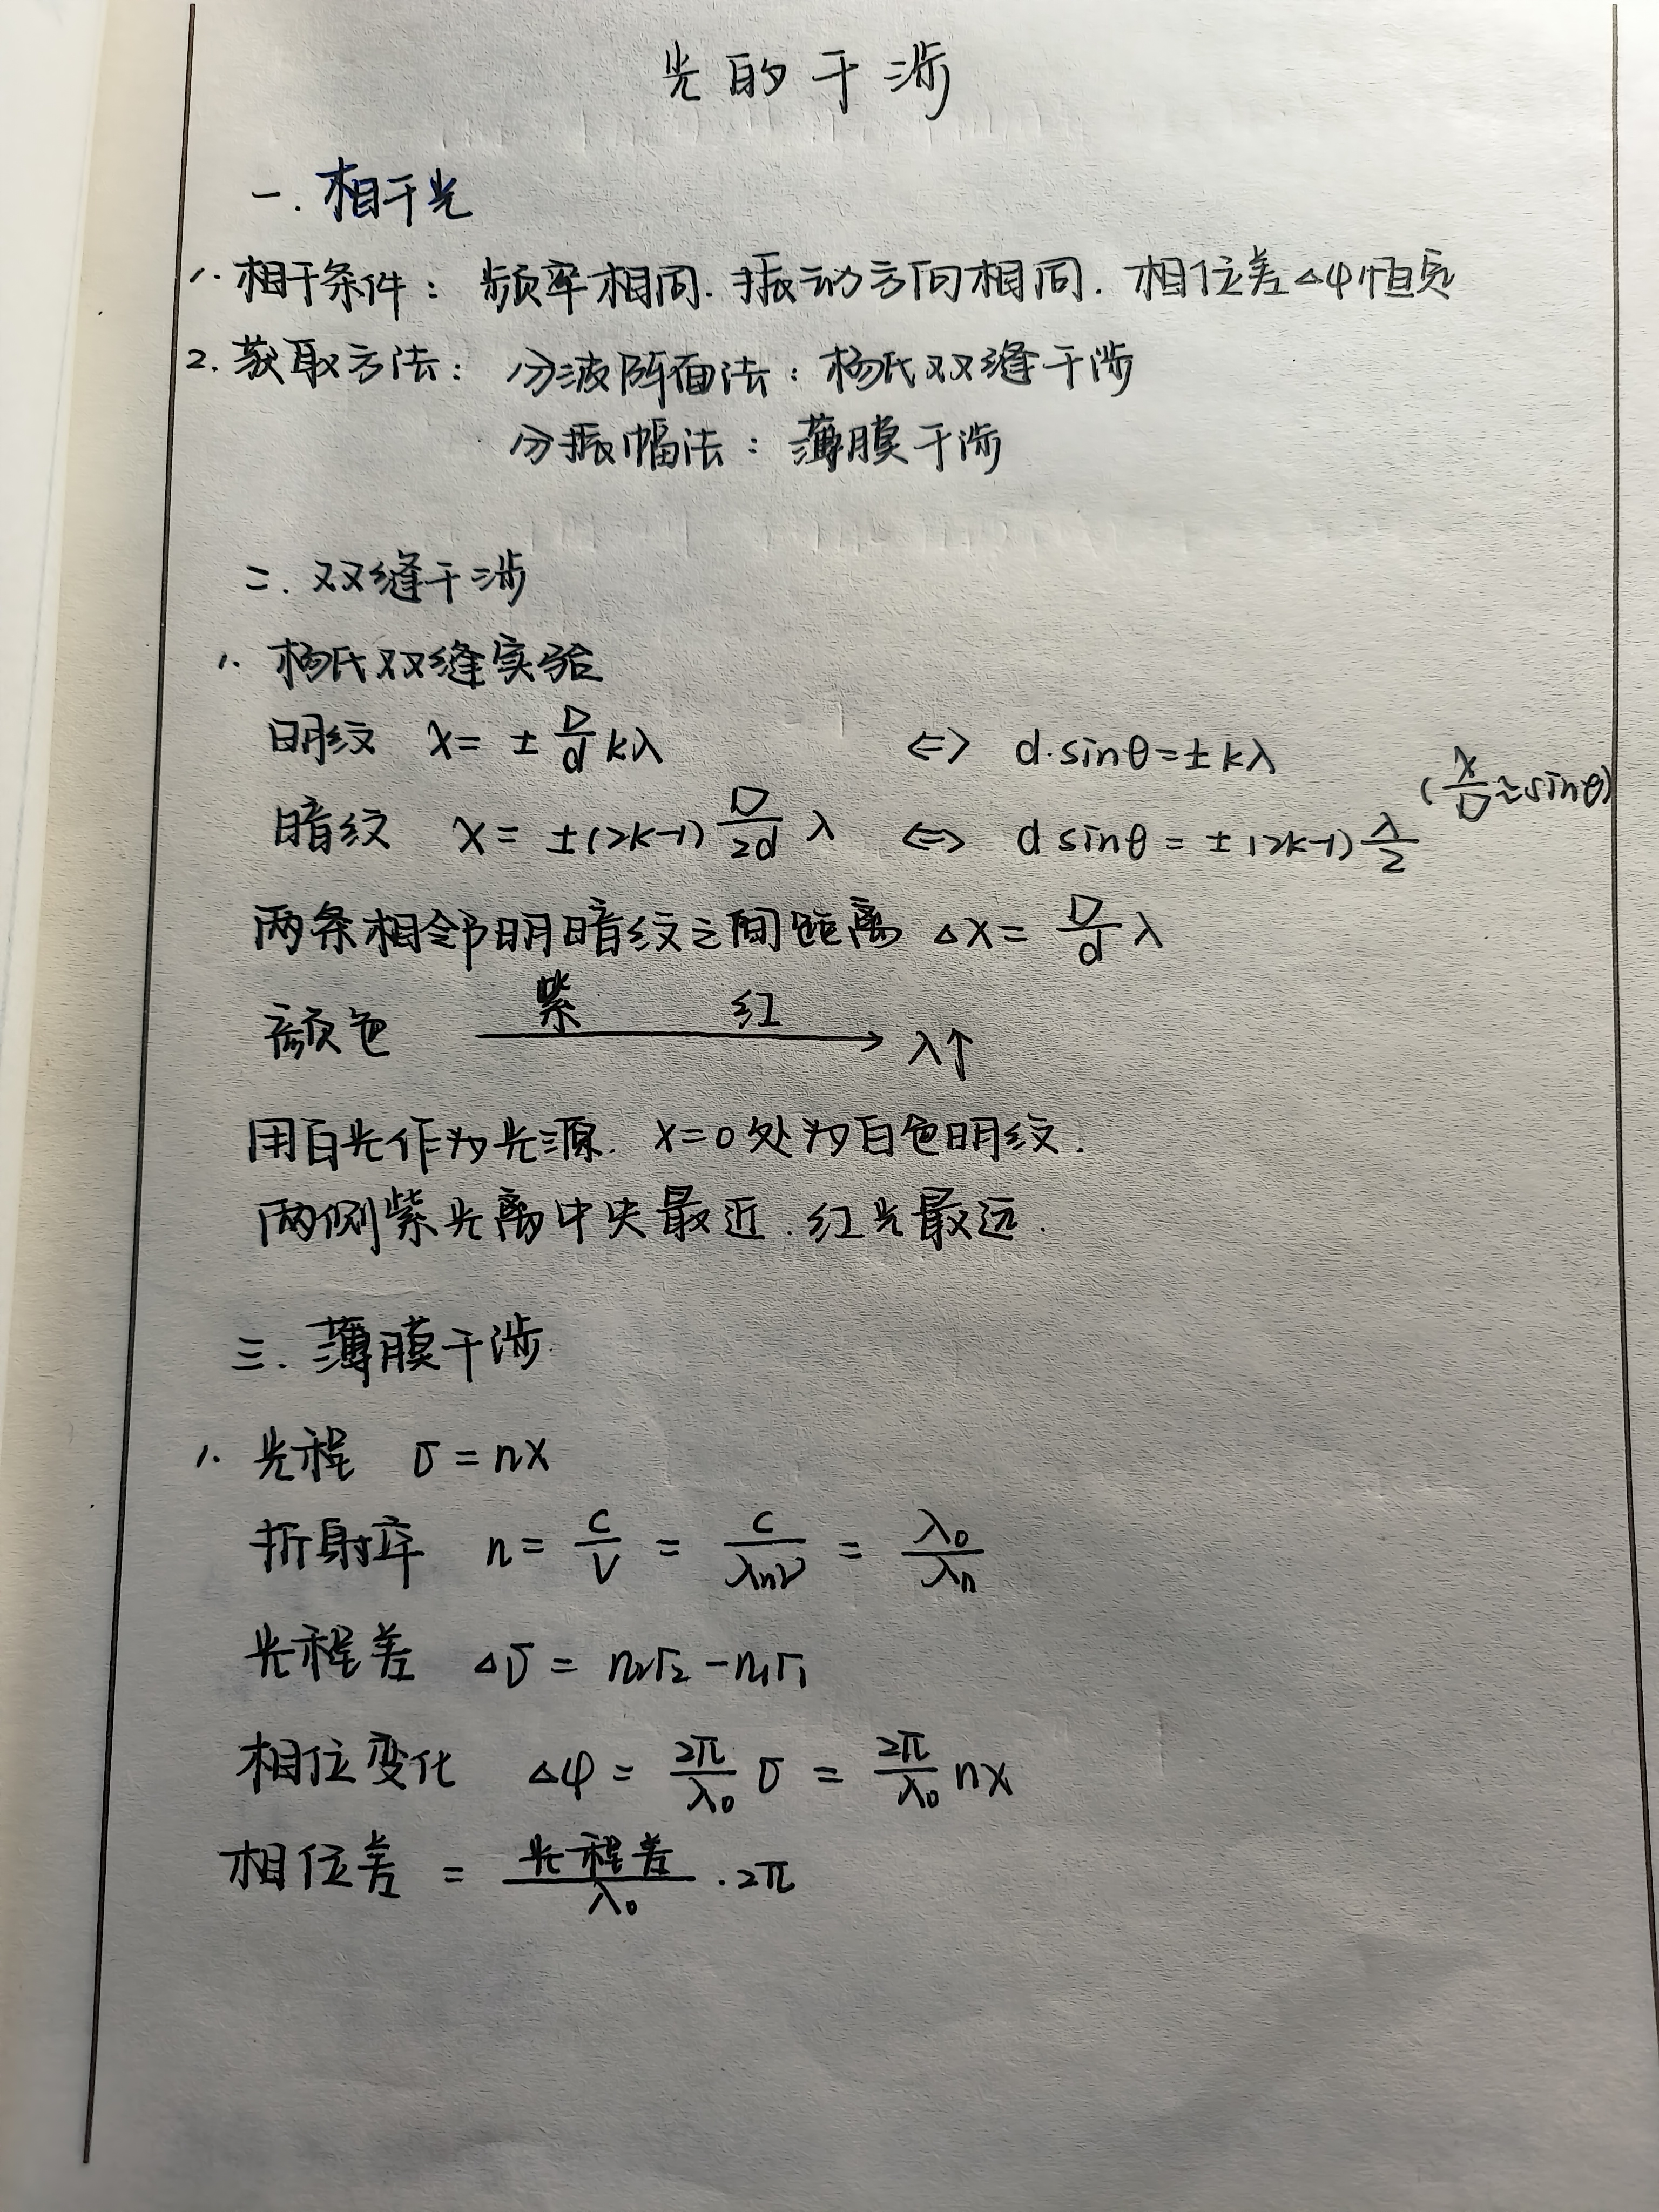 光的干涉
一. 相干光
1. 相干条件: 频率相同. 振动方向相同. 相位差△φ恒定
2. 获取方法: 分波阵面法: 杨氏双缝干涉
分振幅法: 薄膜干涉
二. 双缝干涉
1. 杨氏双缝实验
明纹 x = ± D/d kλ ⇔ d·sinθ = ± kλ
(x/D ≈ sinθ)
暗纹 x = ±(2k-1) D/2d λ ⇔ d sinθ = ±(2k-1) λ/2
两条相邻明暗纹之间距离 △x = D/d λ
颜色 紫 红 → λ↑
用白光作为光源. x=0处为白色明纹.
两侧紫光离中央最近. 红光最远.
三. 薄膜干涉.
1. 光程 σ = nx
折射率 n = c/v = c/λₙν = λ₀/λₙ
光程差 △σ = n₂r₂ - n₁r₁
相位变化 △φ = 2π/λ₀ σ = 2π/λ₀ nx
相位差 = 光程差/λ₀ · 2π